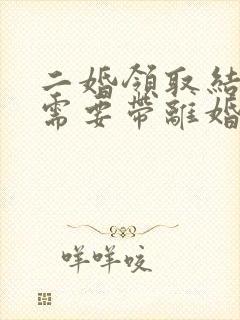 二婚領取結
需要帶離婚
咩咩咬